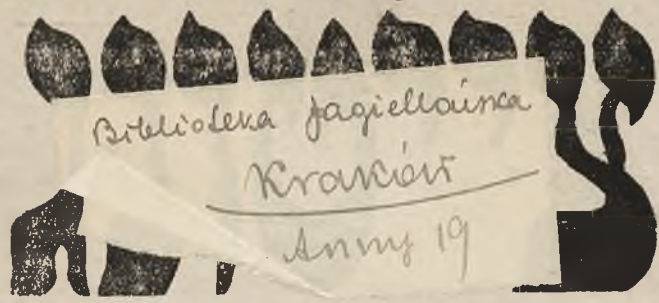 Biblioteka Jagiellońska
Kraków
Anny 19